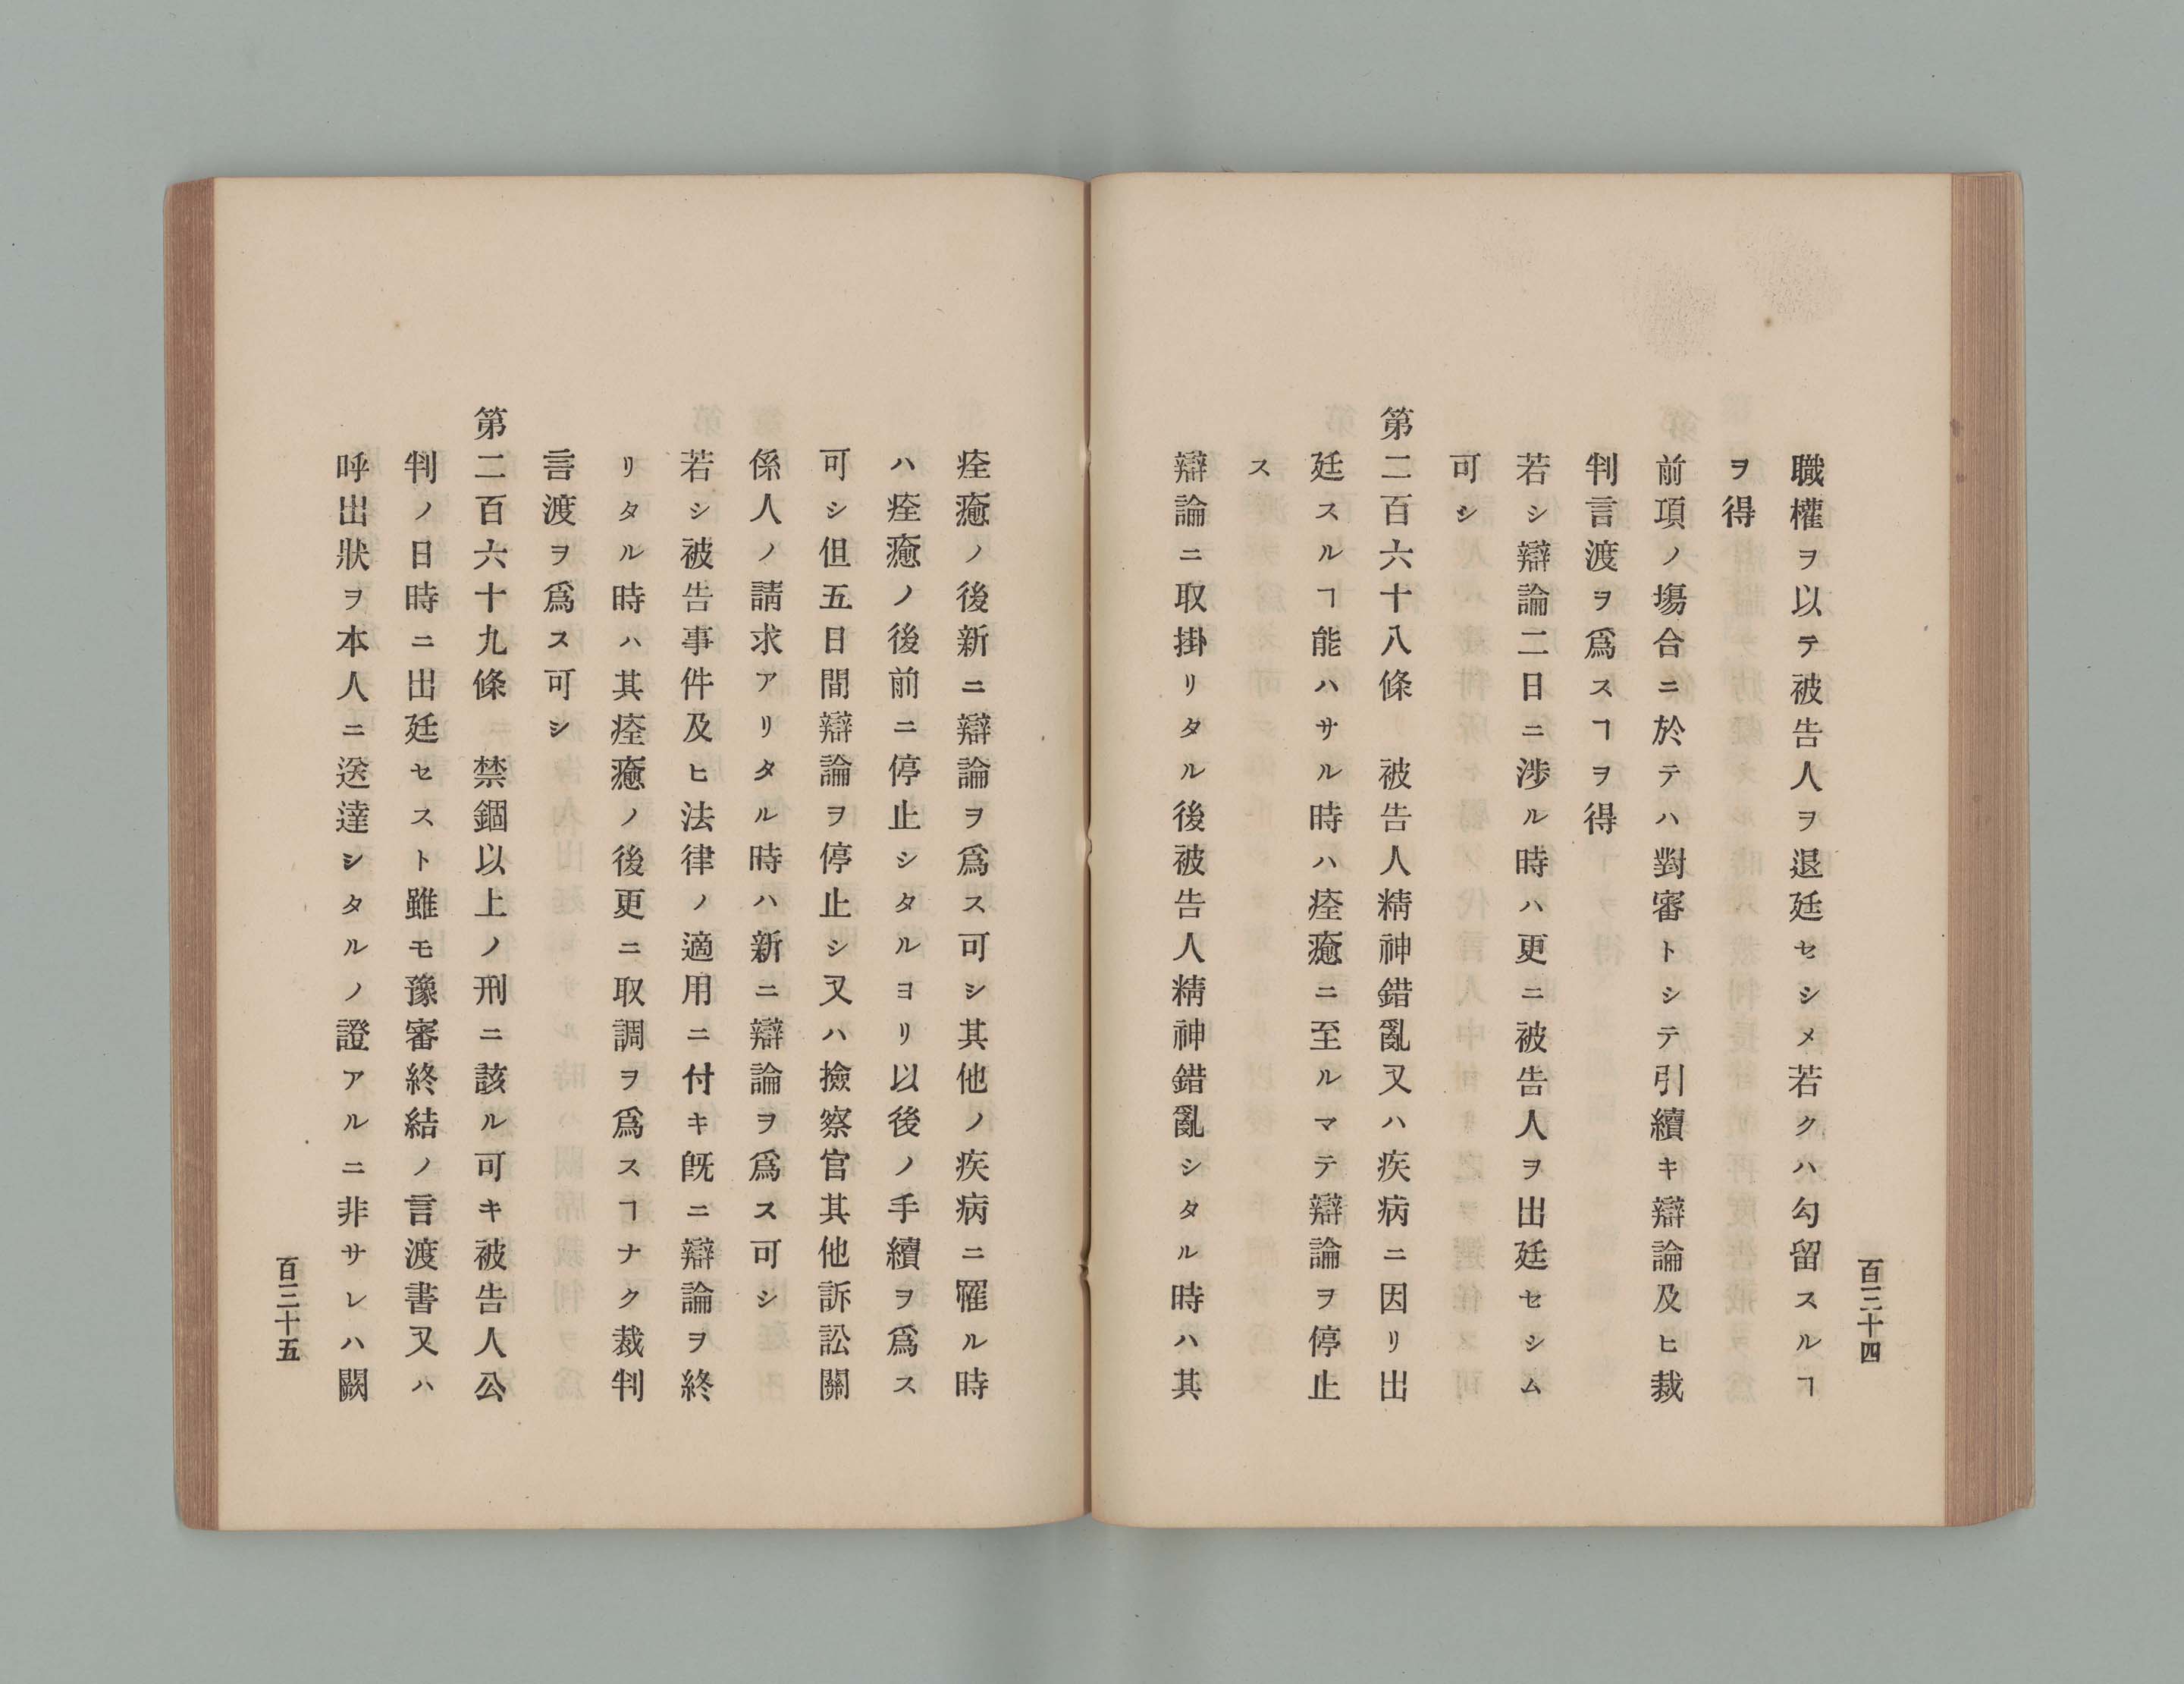 職權ヲ以テ被告人ヲ退廷セシメ若クハ勾留スルヿ
ヲ得
前項ノ塲合ニ於テハ對審トシテ引續キ辯論及ヒ裁
判言渡ヲ爲スヿヲ得
若シ辯論二日ニ渉ル時ハ更ニ被告人ヲ出廷セシム
可シ
第二百六十八條　被告人精神錯亂又ハ疾病ニ因リ出
廷スルヿ能ハサル時ハ痊癒ニ至ルマテ辯論ヲ停止
ス
辯論ニ取掛リタル後被告人精神錯亂シタル時ハ其
百三十四
痊癒ノ後新ニ辯論ヲ爲ス可シ其他ノ疾病ニ罹ル時
ハ痊癒ノ後前ニ停止シタルヨリ以後ノ手續ヲ爲ス
可シ但五日間辯論ヲ停止シ又ハ撿察官其他訴訟關
係人ノ請求アリタル時ハ新ニ辯論ヲ爲ス可シ
若シ被告事件及ヒ法律ノ適用ニ付キ旣ニ辯論ヲ終
リタル時ハ其痊癒ノ後更ニ取調ヲ爲スヿナク裁判
言渡ヲ爲ス可シ
第二百六十九條　禁錮以上ノ刑ニ該ル可キ被告人公
判ノ日時ニ出廷セスト雖モ豫審終結ノ言渡書又ハ
呼出狀ヲ本人ニ送達シタルノ證アルニ非サレハ闕
百三十五